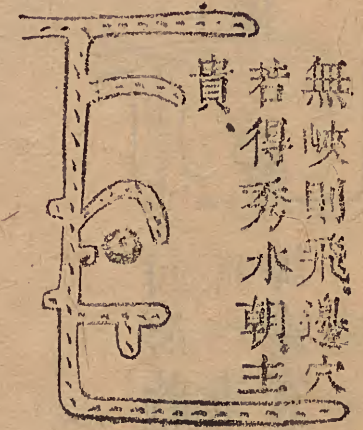 無峽則飛邊穴
若得秀水朝主
貴